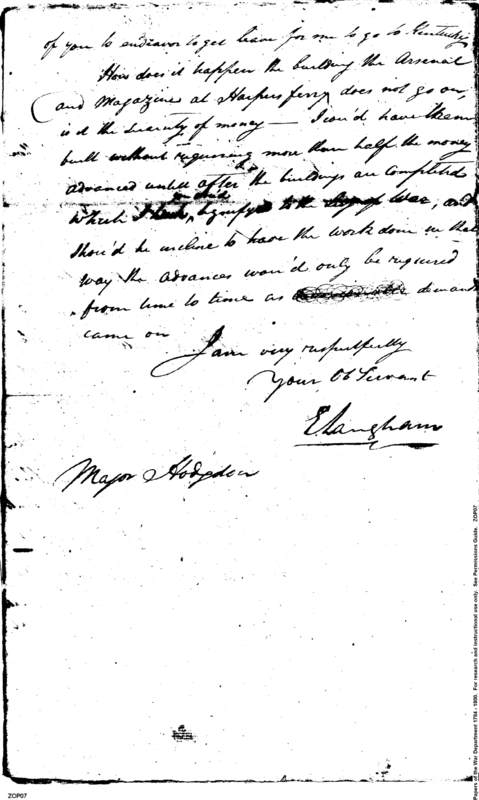 of you to endeavor to get leave for me to go to Kentucky
How does it happen the building the Arsenal
and Magazine at Harpers ferry does not go on,
is it the scarcity of money — I cou'd have them
built without requiring more than half the money
advanced untill after the buildings are completed
which I signifyed to the Secy of War, and
shou'd he incline to have the work done in that
way the advances wou'd only be required
from time to time as demands
came on
I am very respectfully
Your Ob Servant
E Langham
Major Hodgdon
ZOP07
Papers of the War Department 1784 - 1800. For research and instructional use only. See Permissions Guide. ZOP07